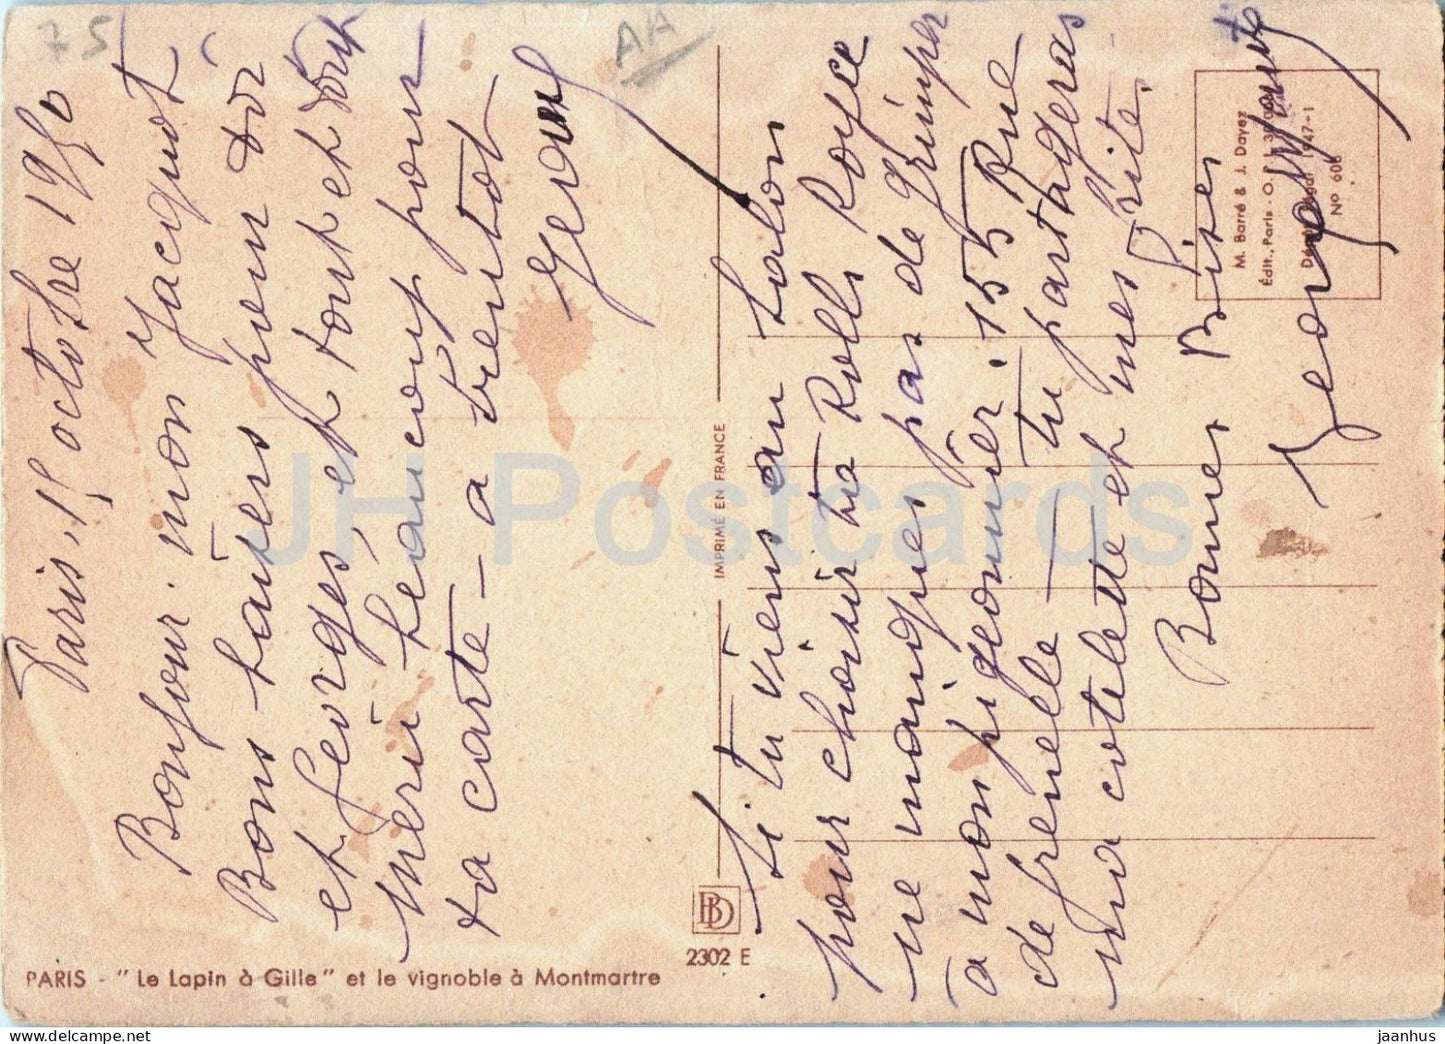 75
AA
Paris, 15 octobre 1950
Bonjour. mon Jacquot
Bons baisers pour toi
et Georges, et tout et tout
Merci beaucoup pour
ta carte - a bientot
Si tu viens au Salon
pour choisir ta Rolls Royce
ne manques pas de grimper
a mon pigeonnier. 155 Rue
de Grenelle - tu partageras
ma cotelette et mes frites.
Bonnes Bises
Georges
M. Barré & J. Dayez
Édit., Paris - O.P.I. 
Dépôt légal 1947-1
No 608
IMPRIMÉ EN FRANCE
BD
2302 E
PARIS - "Le Lapin à Gille" et le vignoble à Montmartre
JH Postcards
jaanhus @ delcampe.net